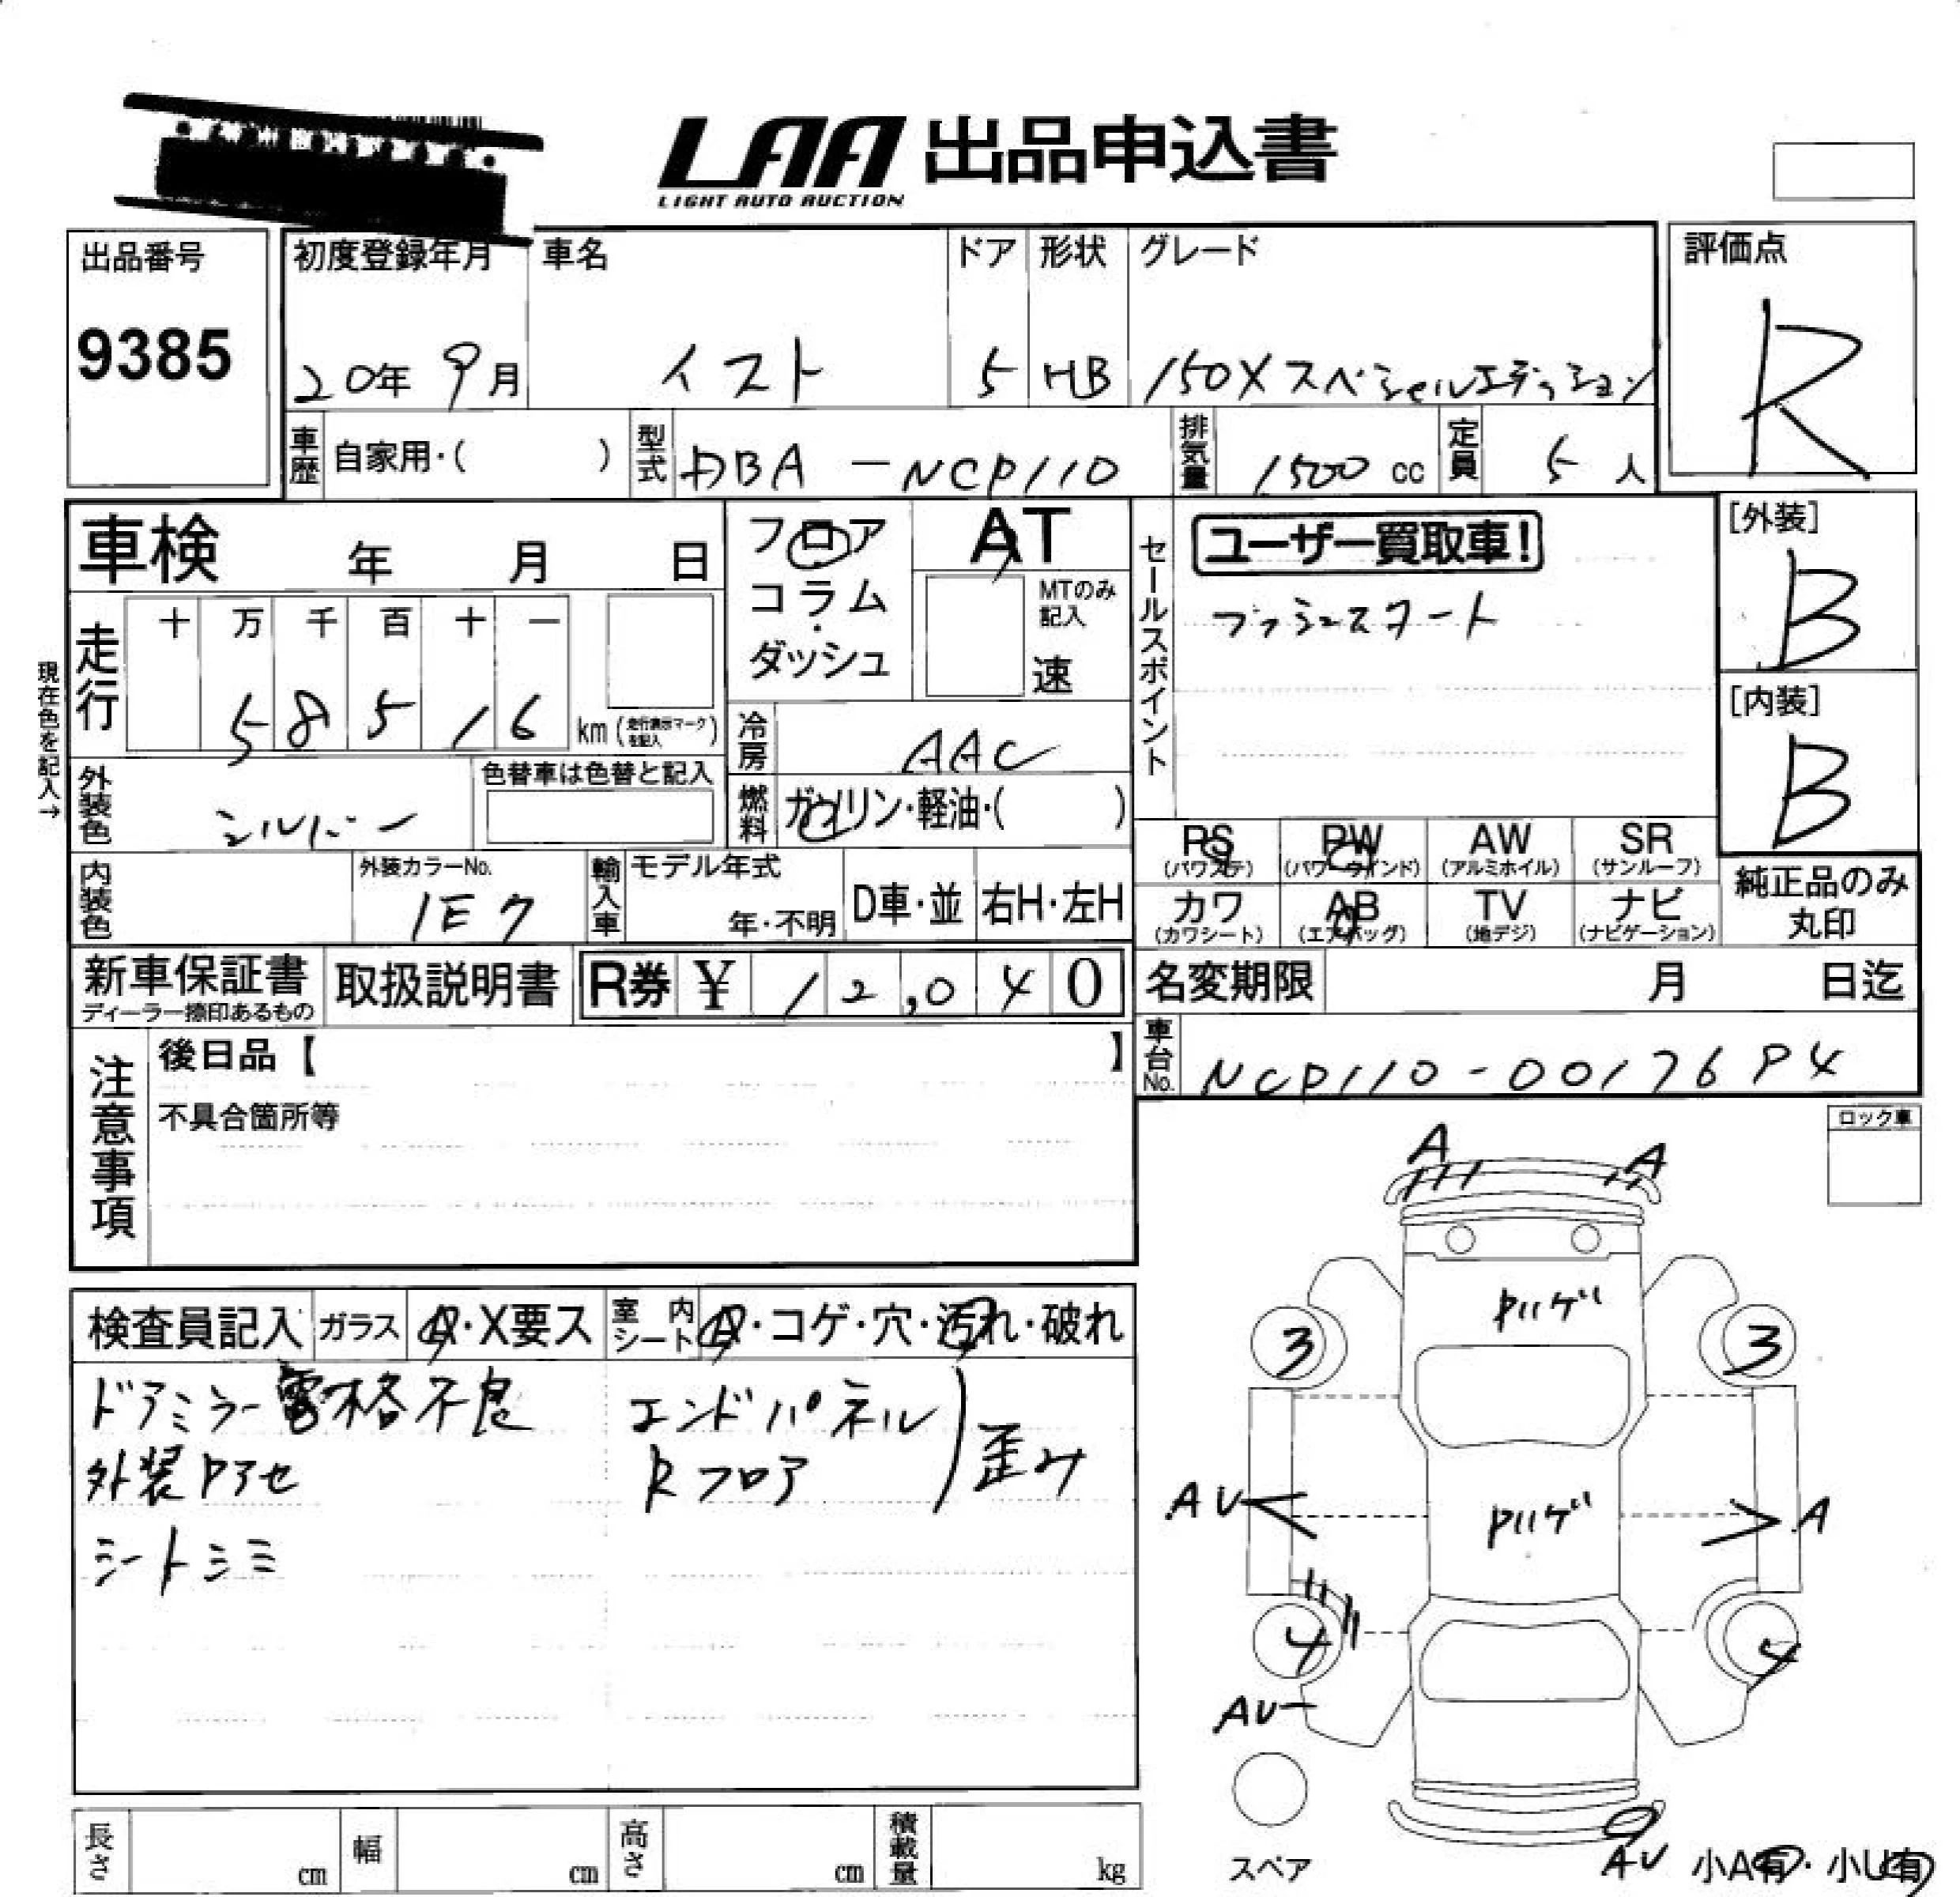 LAA 出品申込書
LIGHT AUTO AUCTION
出品番号
9385
初度登録年月 車名 ドア 形状 グレード
20年 9月 イスト 5 HB 150X スペシャルエディション
評価点
R
車歴 自家用・( ) 型式 DBA-NCP110 排気量 1500 cc 定員 5 人
車検 年 月 日
フロア
コラム
・
ダッシュ
AT
MTのみ
記入
速
セールスポイント
ユーザー買取車!
プッシュスタート
[外装]
B
[内装]
B
現在色を記入→
走行 十 万 千 百 十 一
5 8 5 1 6 km (走行表示マークを記入)
冷房 AAC
外装色 シルバー 色替車は色替と記入
燃料 ガソリン・軽油・( )
PS PW AW SR
(パワステ) (パワーウインド) (アルミホイル) (サンルーフ)
カワ AB TV ナビ
(カワシート) (エアバッグ) (地デジ) (ナビゲーション)
純正品のみ
丸印
内装色 外装カラーNo. 1E7 輸入車 モデル年式 年・不明 D車・並 右H・左H
新車保証書 取扱説明書 R券 ¥ 12,040
ディーラー捺印あるもの
名変期限 月 日迄
車台No. NCP110-0017694
注意事項
後日品【 】
不具合箇所等
ロック車
検査員記入 ガラス A・X要ス 室内シート A・コゲ・穴・汚れ・破れ
ドアミラー電格不良 エンドパネル
外装Pアセ Rフロア 歪み
シートシミ
A A
Pハゲ
3 3
Pハゲ
AU A
4 4
AU
スペア
AU 小A有・小U有
長さ cm 幅 cm 高さ cm 積載量 kg